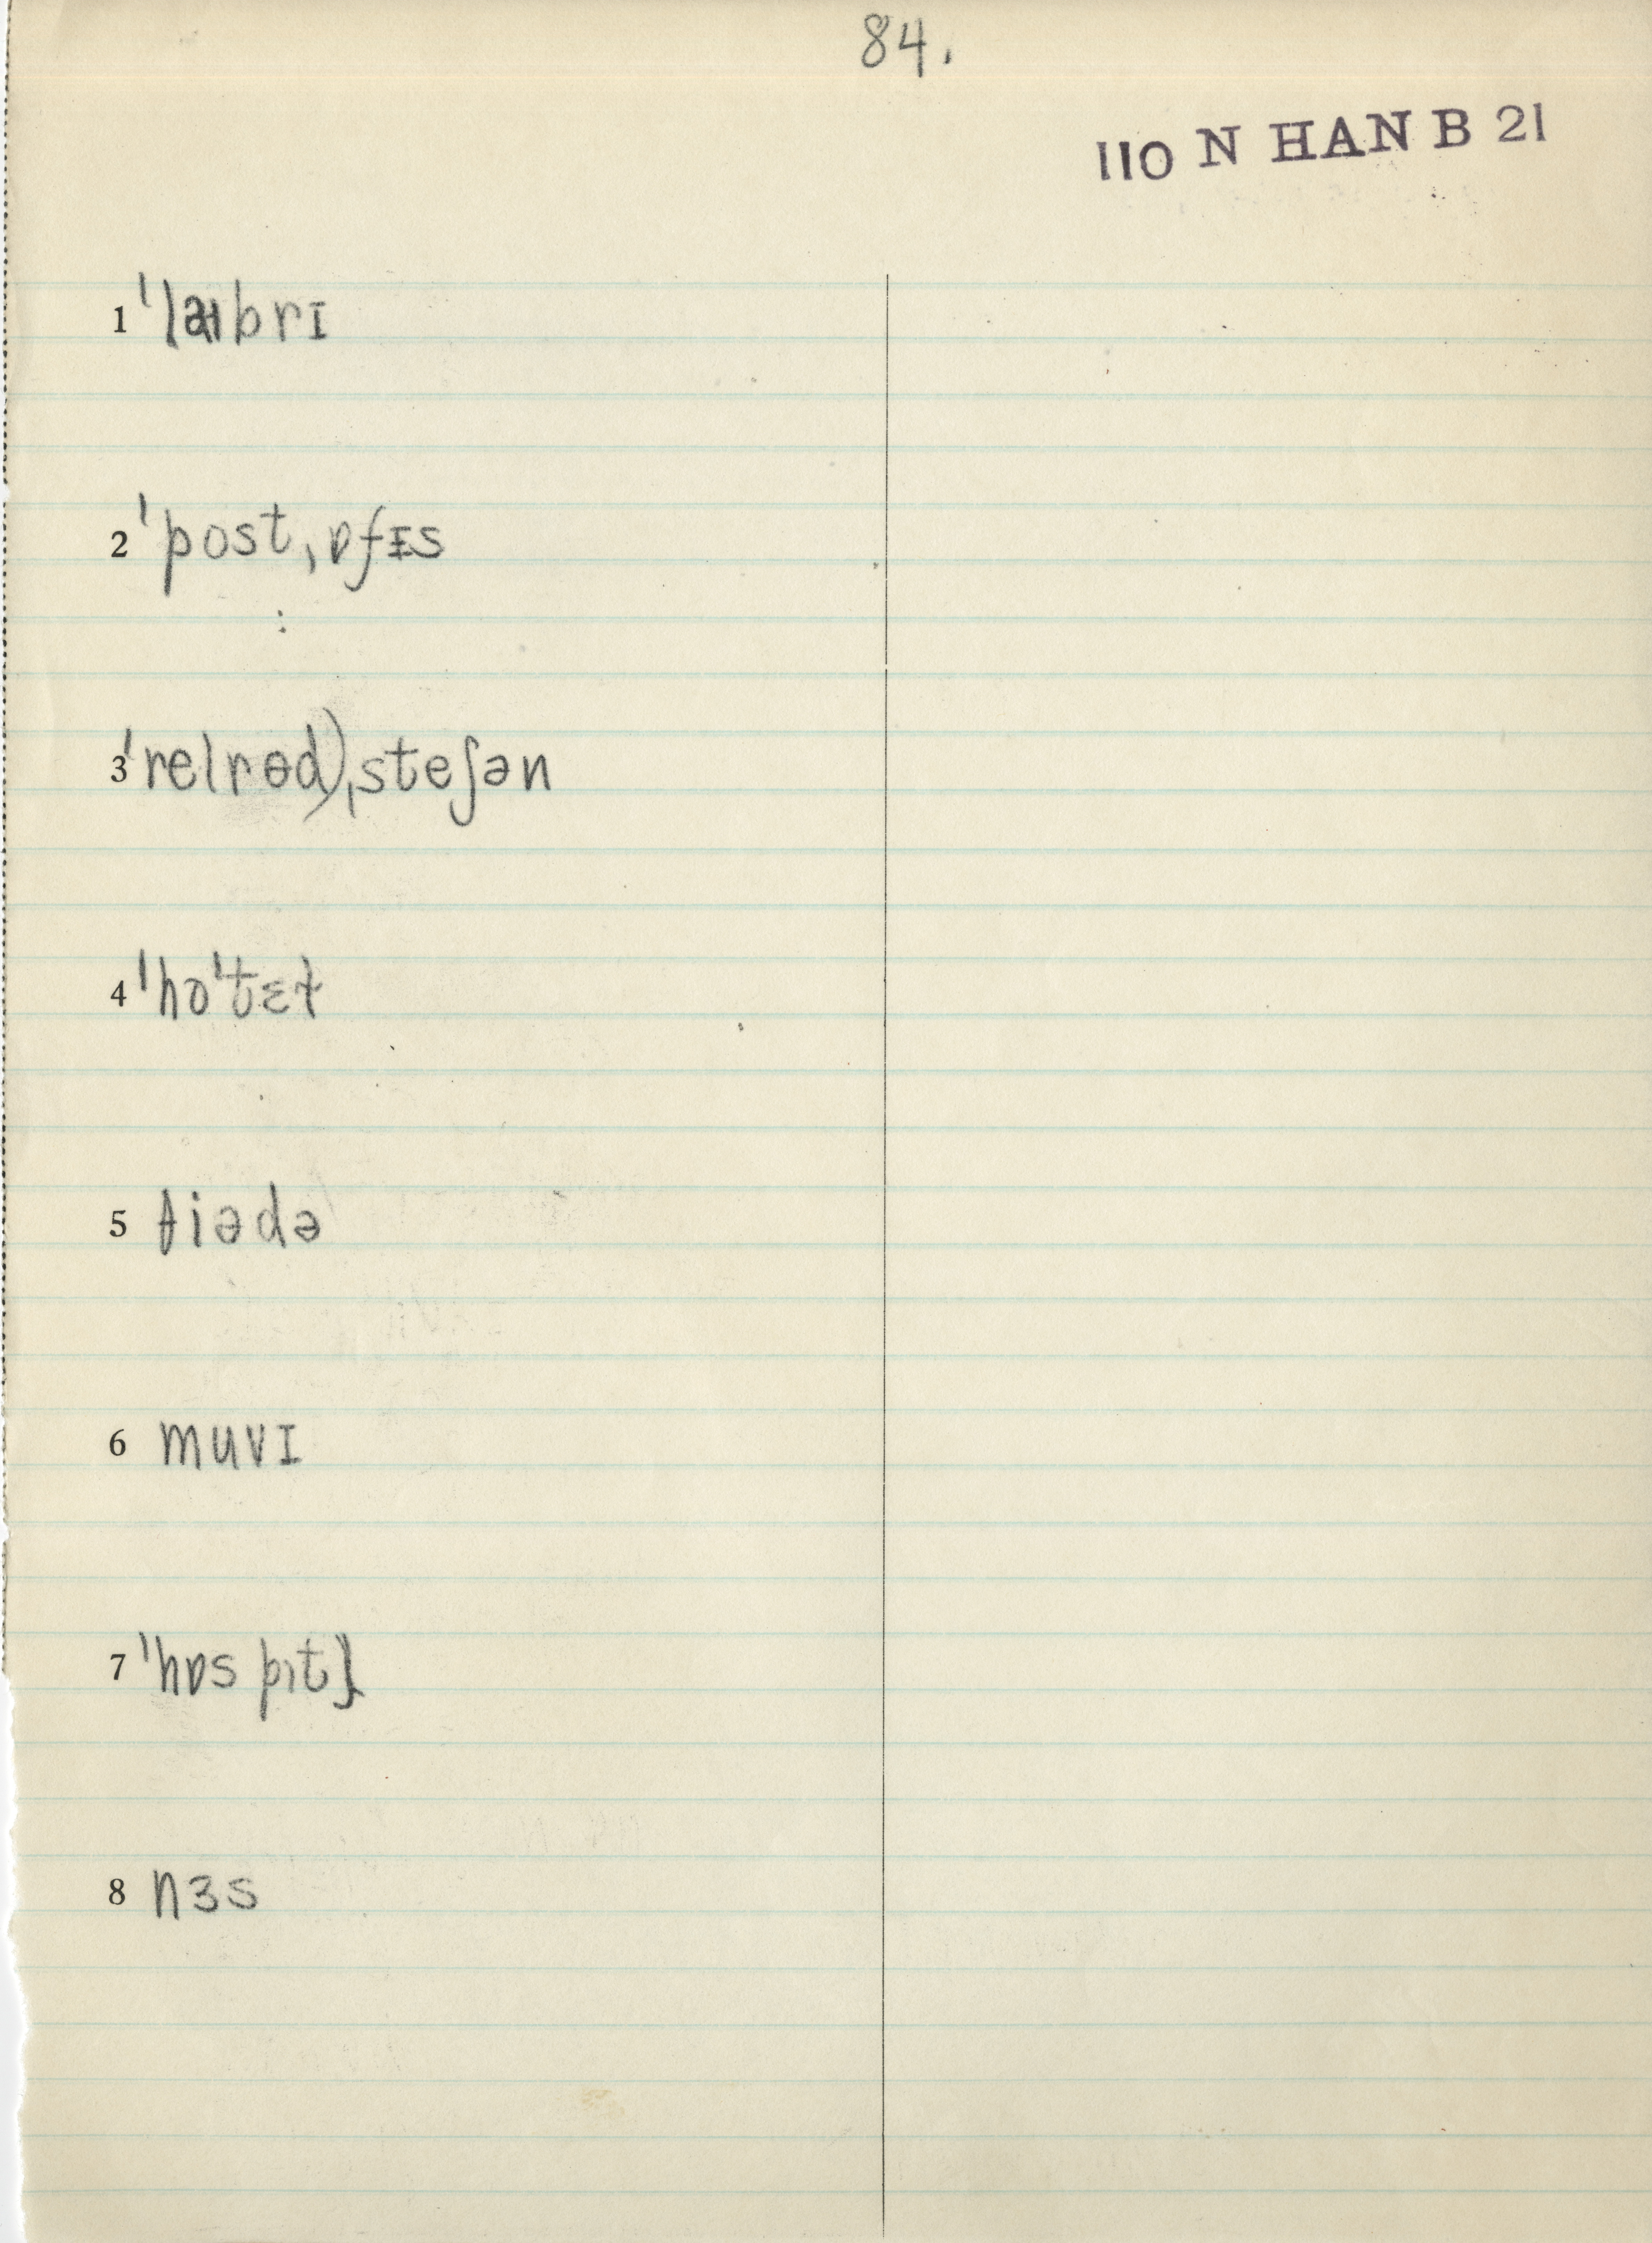 84.
110 N HAN B 21
1 ˈlaɪbrɪ
2 ˈpostˌɒfɪs
3 ˈrelrɵd)ˌsteʃən
4 ˈhoˈtɛɫ
5 θiədə
6 muvɪ
7 ˈhɒspɪtl̩
8 nɜs